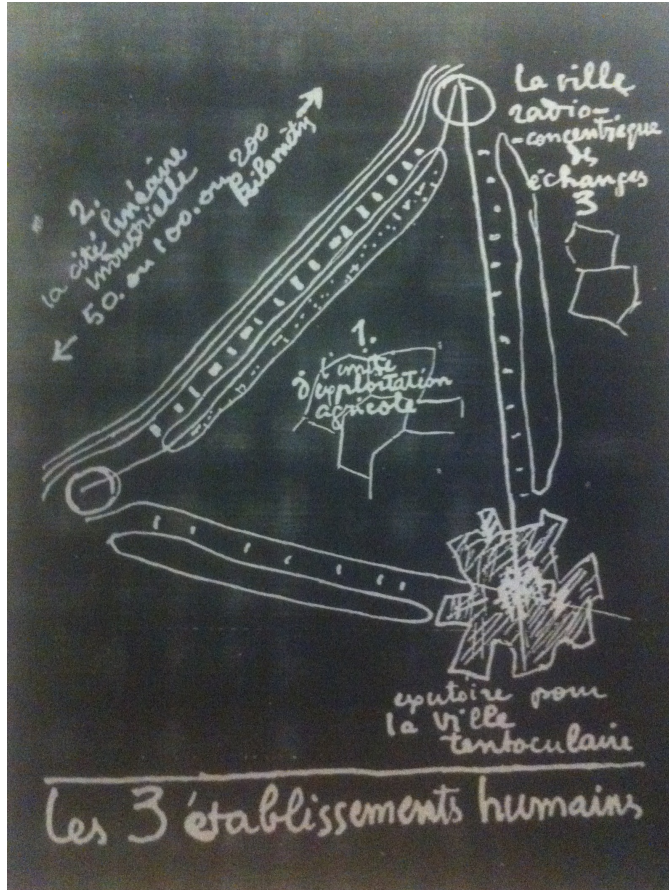 2.
la cité linéaire
industrielle
50. ou 100. ou 200
kilomèt
la ville
radio-
-concentrique
des
échanges
3
1.
l'unité
d'exploitation
agricole
exutoire pour
la ville
tentaculaire
Les 3 établissements humains